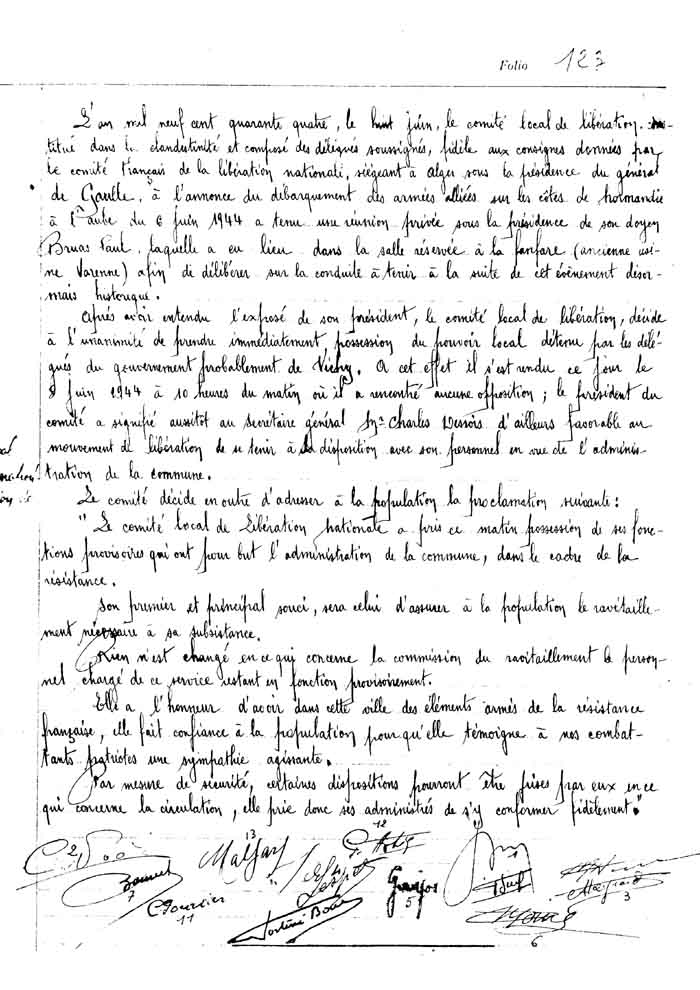 Folio 123
L'an mil neuf cent quarante quatre, le huit juin, le comité local de libération. ins-
titué dans la clandestinité et composé des délégués soussignés, fidèle aux consignes données par
le comité Français de la libération nationale, siégeant à Alger sous la présidence du général
de Gaulle, à l'annonce du débarquement des armées alliées sur les côtes de Normandie
à l'aube du 6 juin 1944 a tenu une réunion privée sous la présidence de son doyen
Bruas Paul, laquelle a eu lieu dans la salle réservée à la fanfare (ancienne usi-
ne Varenne) afin de délibérer sur la conduite à tenir à la suite de cet évènement désor-
mais historique.
Après avoir entendu l'exposé de son président, le comité local de libération, décide
à l'unanimité de prendre immédiatement, possession du pouvoir local détenu par les délé-
gués du gouvernement probablement de Vichy. A cet effet il s'est rendu ce jour le
8 Juin 1944 à 10 heures du matin où il a rencontré aucune opposition ; le président du
comité a signifié aussitot au secrétaire général Mr Charles d'ailleurs favorable au
mouvement de libération de se tenir à sa disposition avec son personnel en vue de l'adminis-
tration de la commune.
Le comité décide en outre d'adresser à la population la proclamation suivante :
" Le comité local de Libération nationale a pris ce matin possession de ses fonc-
tions provisoires qui ont pour but l'administration de la commune, dans le cadre de la
résistance.
Son premier et principal souci, sera celui d'assurer à la population le ravitaille-
ment nécessaire à sa subsistance.
Rien n'est changé en ce qui concerne la commission du ravitaillement le person-
nel chargé de ce service restant en fonction provisoirement.
Elle a l'honneur d'avoir dans cette ville des éléments armés de la résistance
française, elle fait confiance à la population pour qu'elle témoigne à nos combat-
tants patriotes une sympathie agissante.
Par mesure de sécurité, certaines dispositions pourront être prises par eux en ce
qui concerne la circulation, elle prie donc ses administrés de s'y conformer fidèlement."
2 13 12
7 11 5 3
6